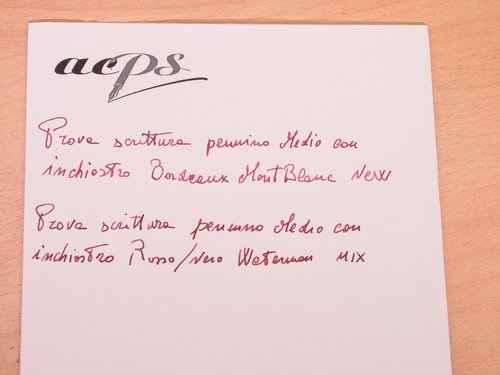 acps
Prova scrittura pennino Medio con
inchiostro Bordeaux MontBlanc
Prova scrittura pennino Medio con
inchiostro Rosso/nero Waterman MIX